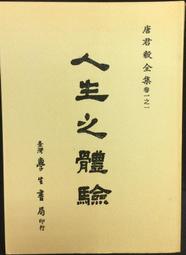 唐君毅全集卷一之一
人生之體驗
臺灣學生書局印行